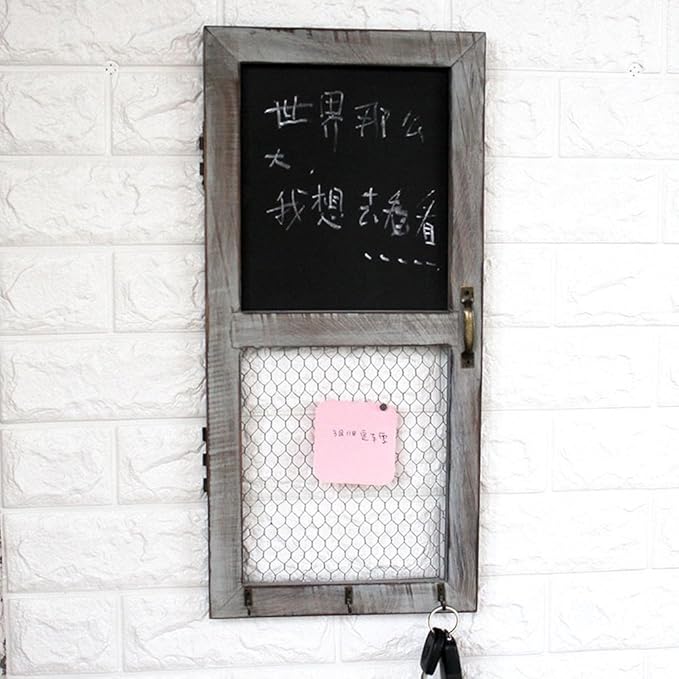 世界那么
大.
我想去看看
......
3月11日